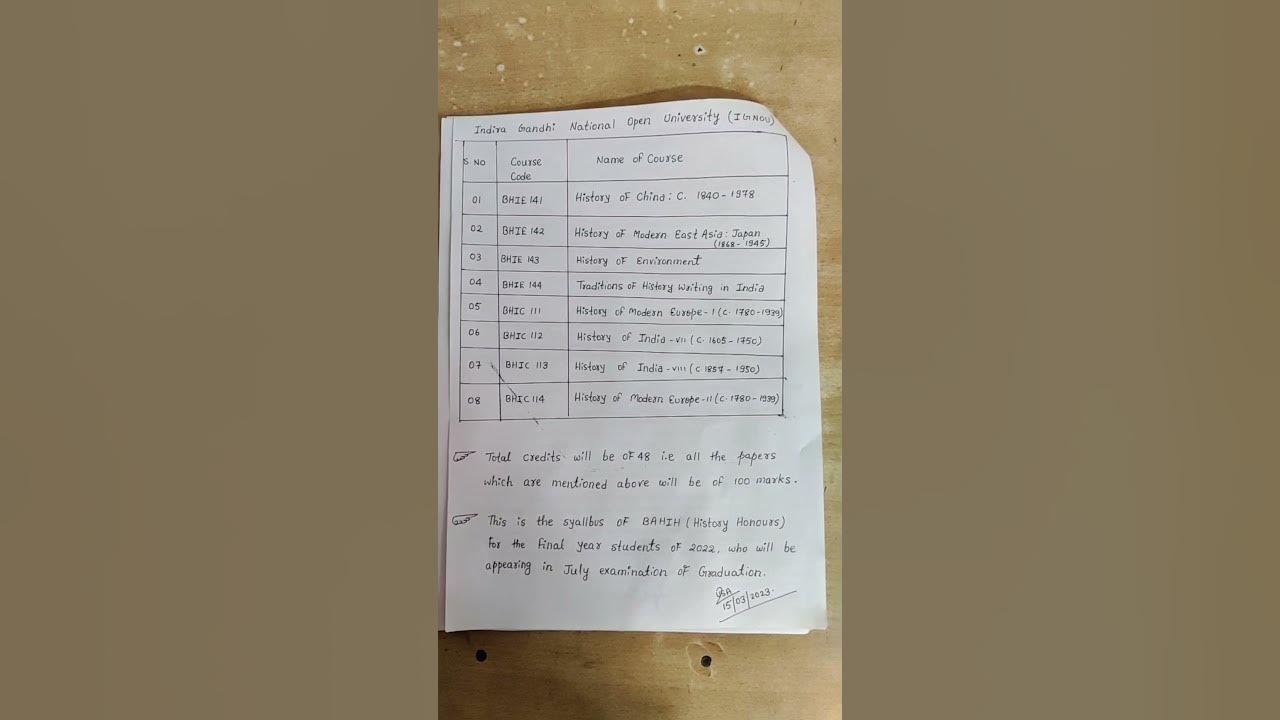 Indira Gandhi National Open University (IGNOU)
S. NO Course Code Name of Course
01 BHIE 141 History of China: C. 1840-1978
02 BHIE 142 History of Modern East Asia: Japan (1868-1945)
03 BHIE 143 History of Environment
04 BHIE 144 Traditions of History Writing in India
05 BHIC 111 History of Modern Europe-I (C. 1780-1939)
06 BHIC 112 History of India-VII (C. 1605-1750)
07 BHIC 113 History of India-VIII (C. 1857-1950)
08 BHIC 114 History of Modern Europe-II (C. 1780-1939)
Total credits will be of 48 i.e all the papers
which are mentioned above will be of 100 marks.
This is the syallbus of BAHIH (History Honours)
for the final year students of 2022, who will be
appearing in July examination of Graduation.
15/03/2023.